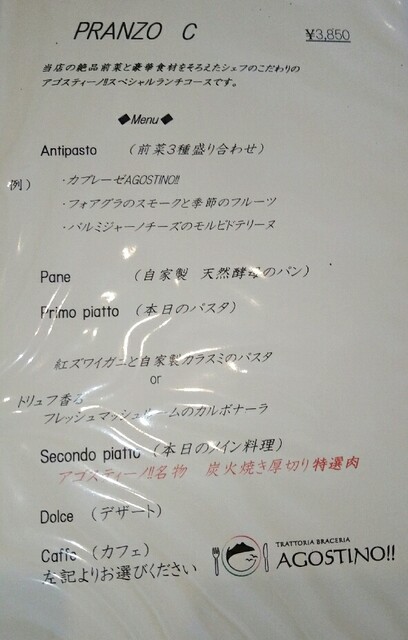 PRANZO C
¥3,850
当店の絶品前菜と豪華食材をそろえたシェフのこだわりの
アゴスティーノ!!スペシャルランチコースです。
◆Menu◆
Antipasto （前菜３種盛り合わせ）
例） ・カプレーゼAGOSTINO!!
・フォアグラのスモークと季節のフルーツ
・パルミジャーノチーズのモルビドテリーヌ
Pane （自家製 天然酵母のパン）
Primo piatto （本日のパスタ）
紅ズワイガニと自家製カラスミのパスタ
or
トリュフ香る
フレッシュマッシュルームのカルボナーラ
Secondo piatto（本日のメイン料理）
アゴスティーノ!!名物 炭火焼き厚切り特選肉
Dolce （デザート）
Caffe （カフェ）
左記よりお選びください
TRATTORIA BRACERIA
AGOSTINO!!